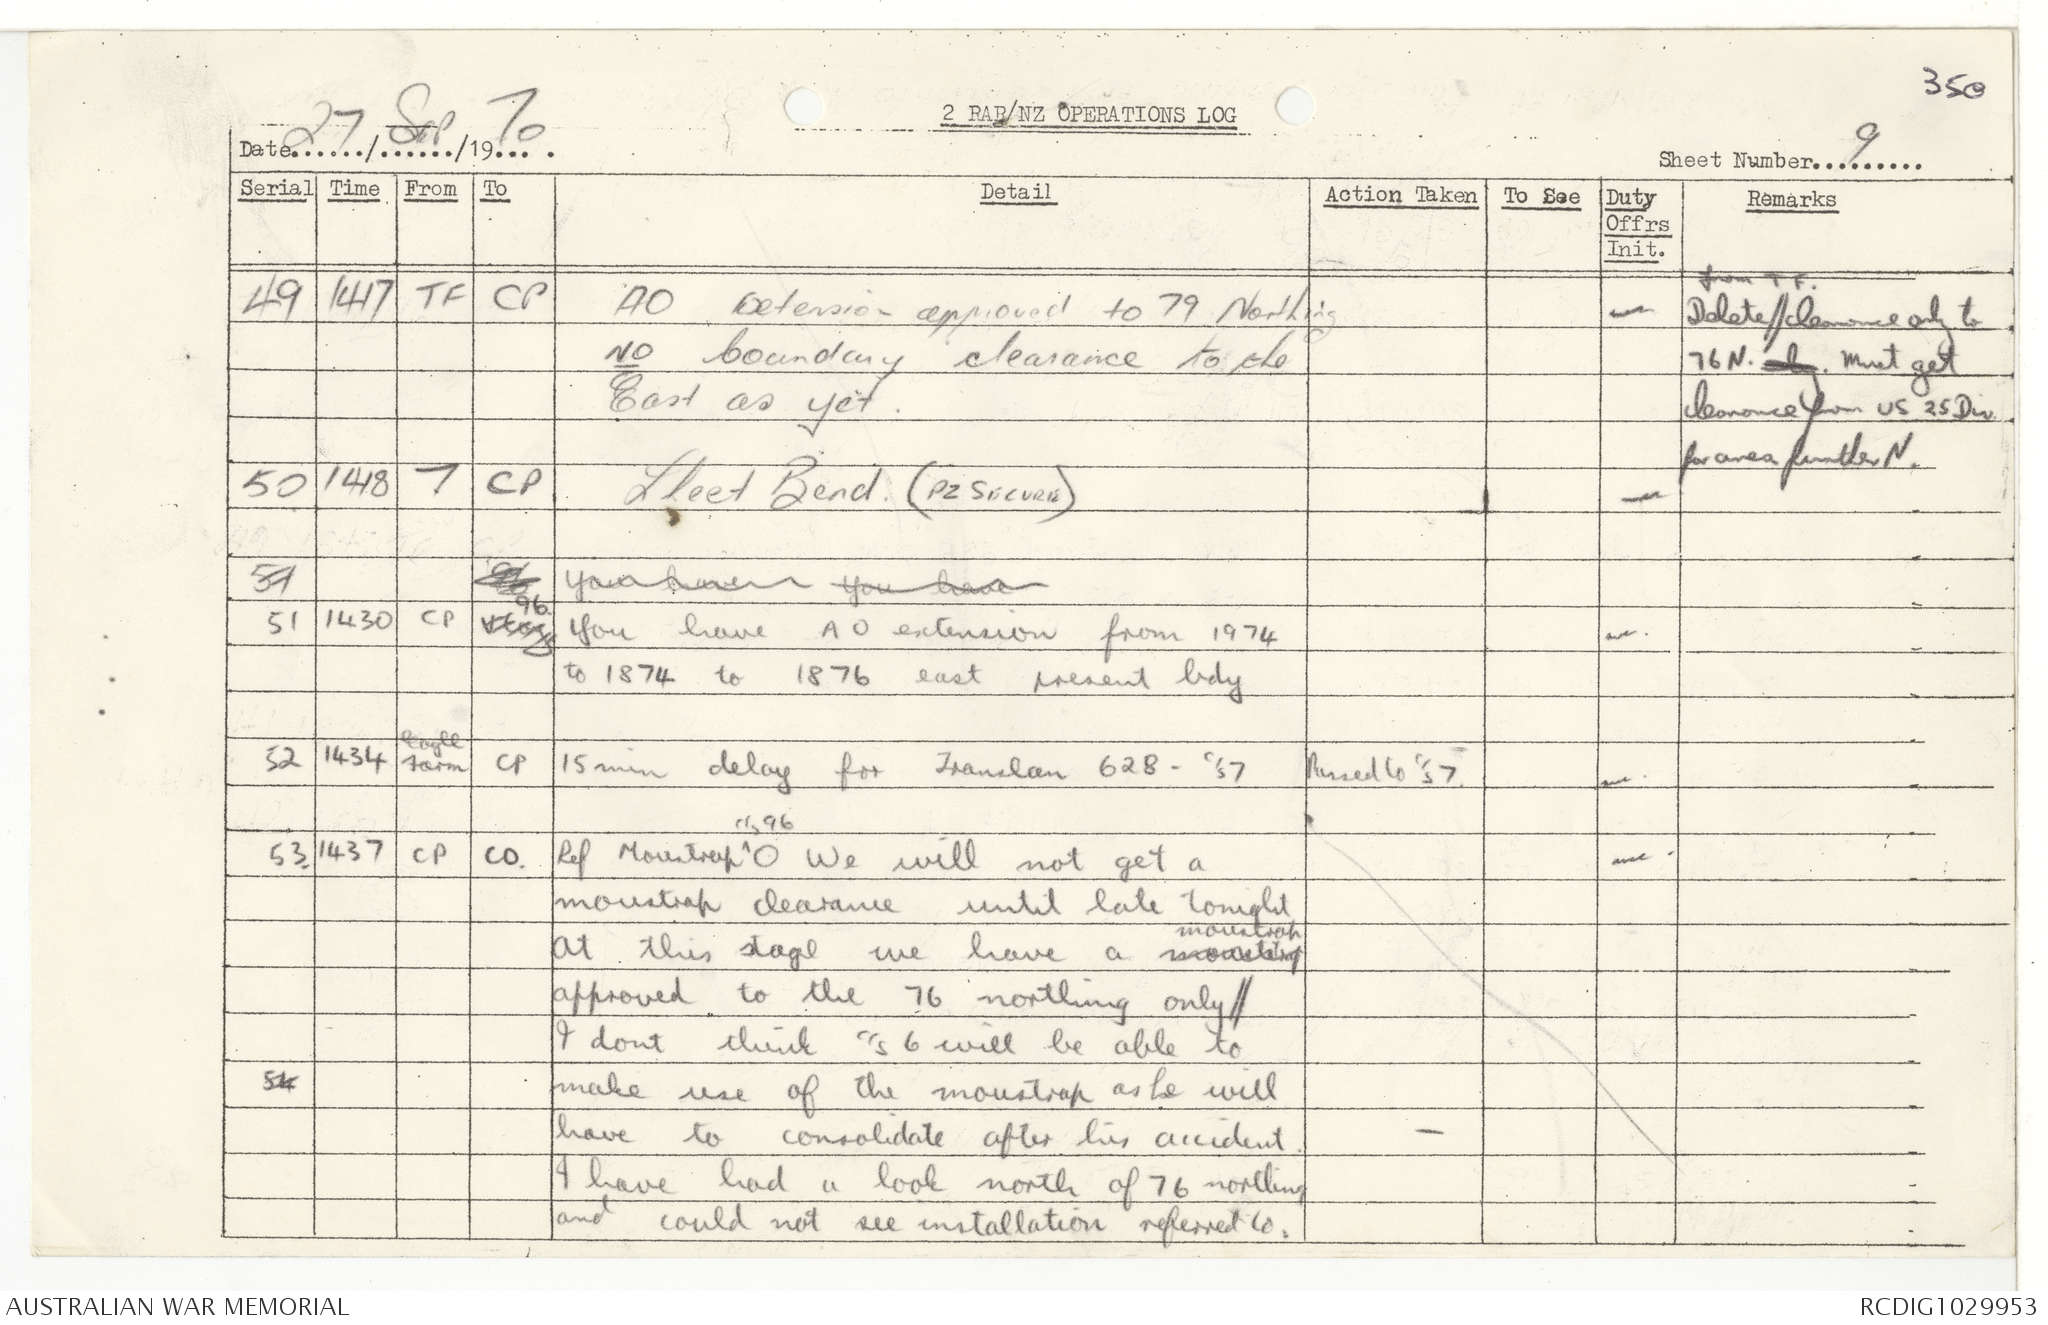 350
2 RAR/NZ OPERATIONS LOG
Date 27/Sep/1970
Sheet Number 9
Serial Time From To Detail Action Taken To See Duty Offrs Init. Remarks
from TF.
49 1417 TF CP AO Extension approved to 79 Northing Delete//clearance only to
NO boundary clearance to the 76 N. Must get
East as yet. clearance from US 25 Div.
for area further N.
50 1418 7 CP Fleet Bend. (PZ SECURE)
51 You have You have
96.
51 1430 CP You have AO extension from 1974
to 1874 to 1876 east present bdy
52 1434 Eagle Farm CP 15 min delay for 628 - c/s 7 Passed to c/s 7.
c/s 96
53. 1437 CP CO. Ref Moustrap ^O We will not get a
moustrap clearance until late tonight
At this stage we have a moustrap
approved to the 76 northing only//
I dont think c/s 6 will be able to
54 make use of the moustrap as he will
have to consolidate after his accident. -
I have had a look north of 76 northing
and could not see installation referred to.
AUSTRALIAN WAR MEMORIAL
RCDIG1029953